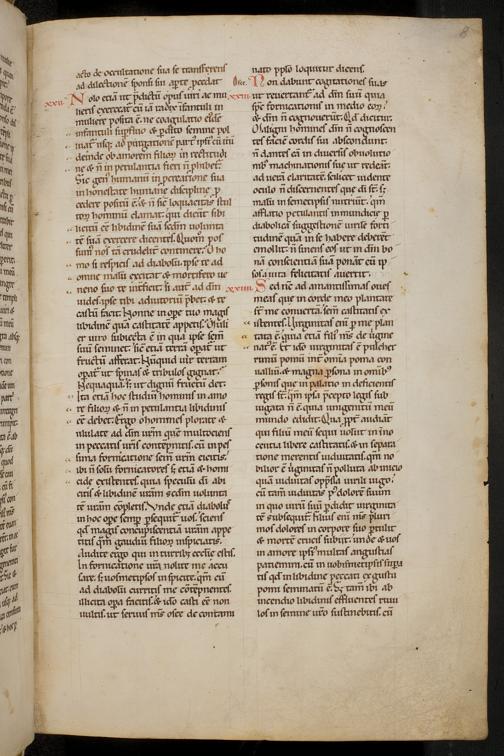 acto de occultatione sua se transferens
ad dilectionem sponsi sui aperte procedat
xxii. Nolo etiam ut predictum opus viri ac mu
lieris exerceat cum iam infantuli in
muliere positi e ne coagulatio eide
infantuli superfluo et perdito semine pol
luatur usque ad purgationem partus ipsius cum
deinde ob amorem filiorum in rectitudi
ne et non in petulantia fieri non prohibet
Sic genus humanum in procreatione sua
in honestate humane discipline pro
cedere positum est et non sic loquacitas stul
torum hominum clamat qui dicunt sibi
licitum esse libidinem suam secundum volunta
te suam exercere dicentes Quomodo pos
sumus nos tam crudeliter continere O ho
mo si respicis ad diabolum ipse te ad
omne malum excitat et mortifero ve
neno suo te interficit si autem ad deum
vides ipse tibi adiutorium prebet et te
castum facit Nonne in opere tuo magis
libidinem quam castitatem appetis
er viro subiecta e in qua ipse semen
suum seminet sicut etiam terra operatur ut
fructum afferat Numquid vir terram
operatur ut spinas et tribulos gignat
Nequaquam sed ut dignum fructum det
Ita etiam hoc studium hominis in amo
re filiorum et non in petulantia libidinis
esse debet Ergo o homines plorate et
ululate ad deum vestrum quem multociens
in peccatis vestris contemnitis cum in pes
sima fornicatione semen vestrum eicitis
ibi non solum fornicatores sed etiam et homi
cide existentes quia speculum dei abi
citis et libidinem vestram secundum volunta
te vestram completis Unde etiam diabolus
in hoc opere semper persequitur vos sciens
quod magis concupiscentiam vestram appe
titis quam gaudium filiorum inspiciatis
Audite ergo qui in turribus ecclesie estis
In fornicatione vestra nolite me accu
sare sed vosmetipsos inspicite quoniam cum
ad diabolum curritis me contempnentes
illicita opera facitis et ideo casti esse non
vultis ut servus meus osee de contami
nato populo loquitur dicens
Osee. Non dabunt cogitationes suas
xxiii. ut revertantur ad deum suum quia
spiritus fornicationis in medio eorum
et dominum non cognoverunt Quod dicitur
Maligni homines deum non cognoscen
tes faciem cordis sui abscondunt
non dantes eam in diversis obvolutio
nibus machinationis sue ut redeant
ad veram claritatem scilicet vident
oculo non discernentes que dei sunt sed
malum in semetipsis nutriunt quoniam
afflatio petulantis inmundicie per
diabolica suggestionem vires forti
tudinem quam in se habere deberent
emollit non sinens eos ut in deum bo
nam conscientiam suam ponant cum ip
sos a vita felicitatis avertit
xxiiii. Sed nunc ad amantissimas oves
meas que in corde meo plantate
sunt me converta semen castitatis ex
istentes Virginitas enim per me plan
tata est quia etiam filius meus de virgine
natus est Et ideo virginitas est pulcher
rimum pomum inter omnia poma con
vallium et magna persona in omnibus
personis que in palatio indeficientis
regis sunt quoniam ipsa precepto legis sub
iugata non est quia unigenitum meum
mundo edidit Quapropter audiant
qui filium meum sequi volunt in inno
centia libere castitatis et in separa
tione merentis viduitatis quoniam no
bilior est virginitas non polluta ab inicio
quam viduitas oppressa virili iugo
cum tamen viduitas post dolorem suum
in quo virum suum perdidit virginita
te subsequitur Filius enim meus pluri
mos dolores in corpore suo pertulit
et mortem crucis subiit unde et vos
in amore ipsius multas angustias
patiemini cum in vobismetipsis supera
tis quod in libidine peccati ex gustu
pomi seminatum e Sed tamen ibi ab
incendio libidinis effluentes rivu
los in semine vestro sustinebitis cum